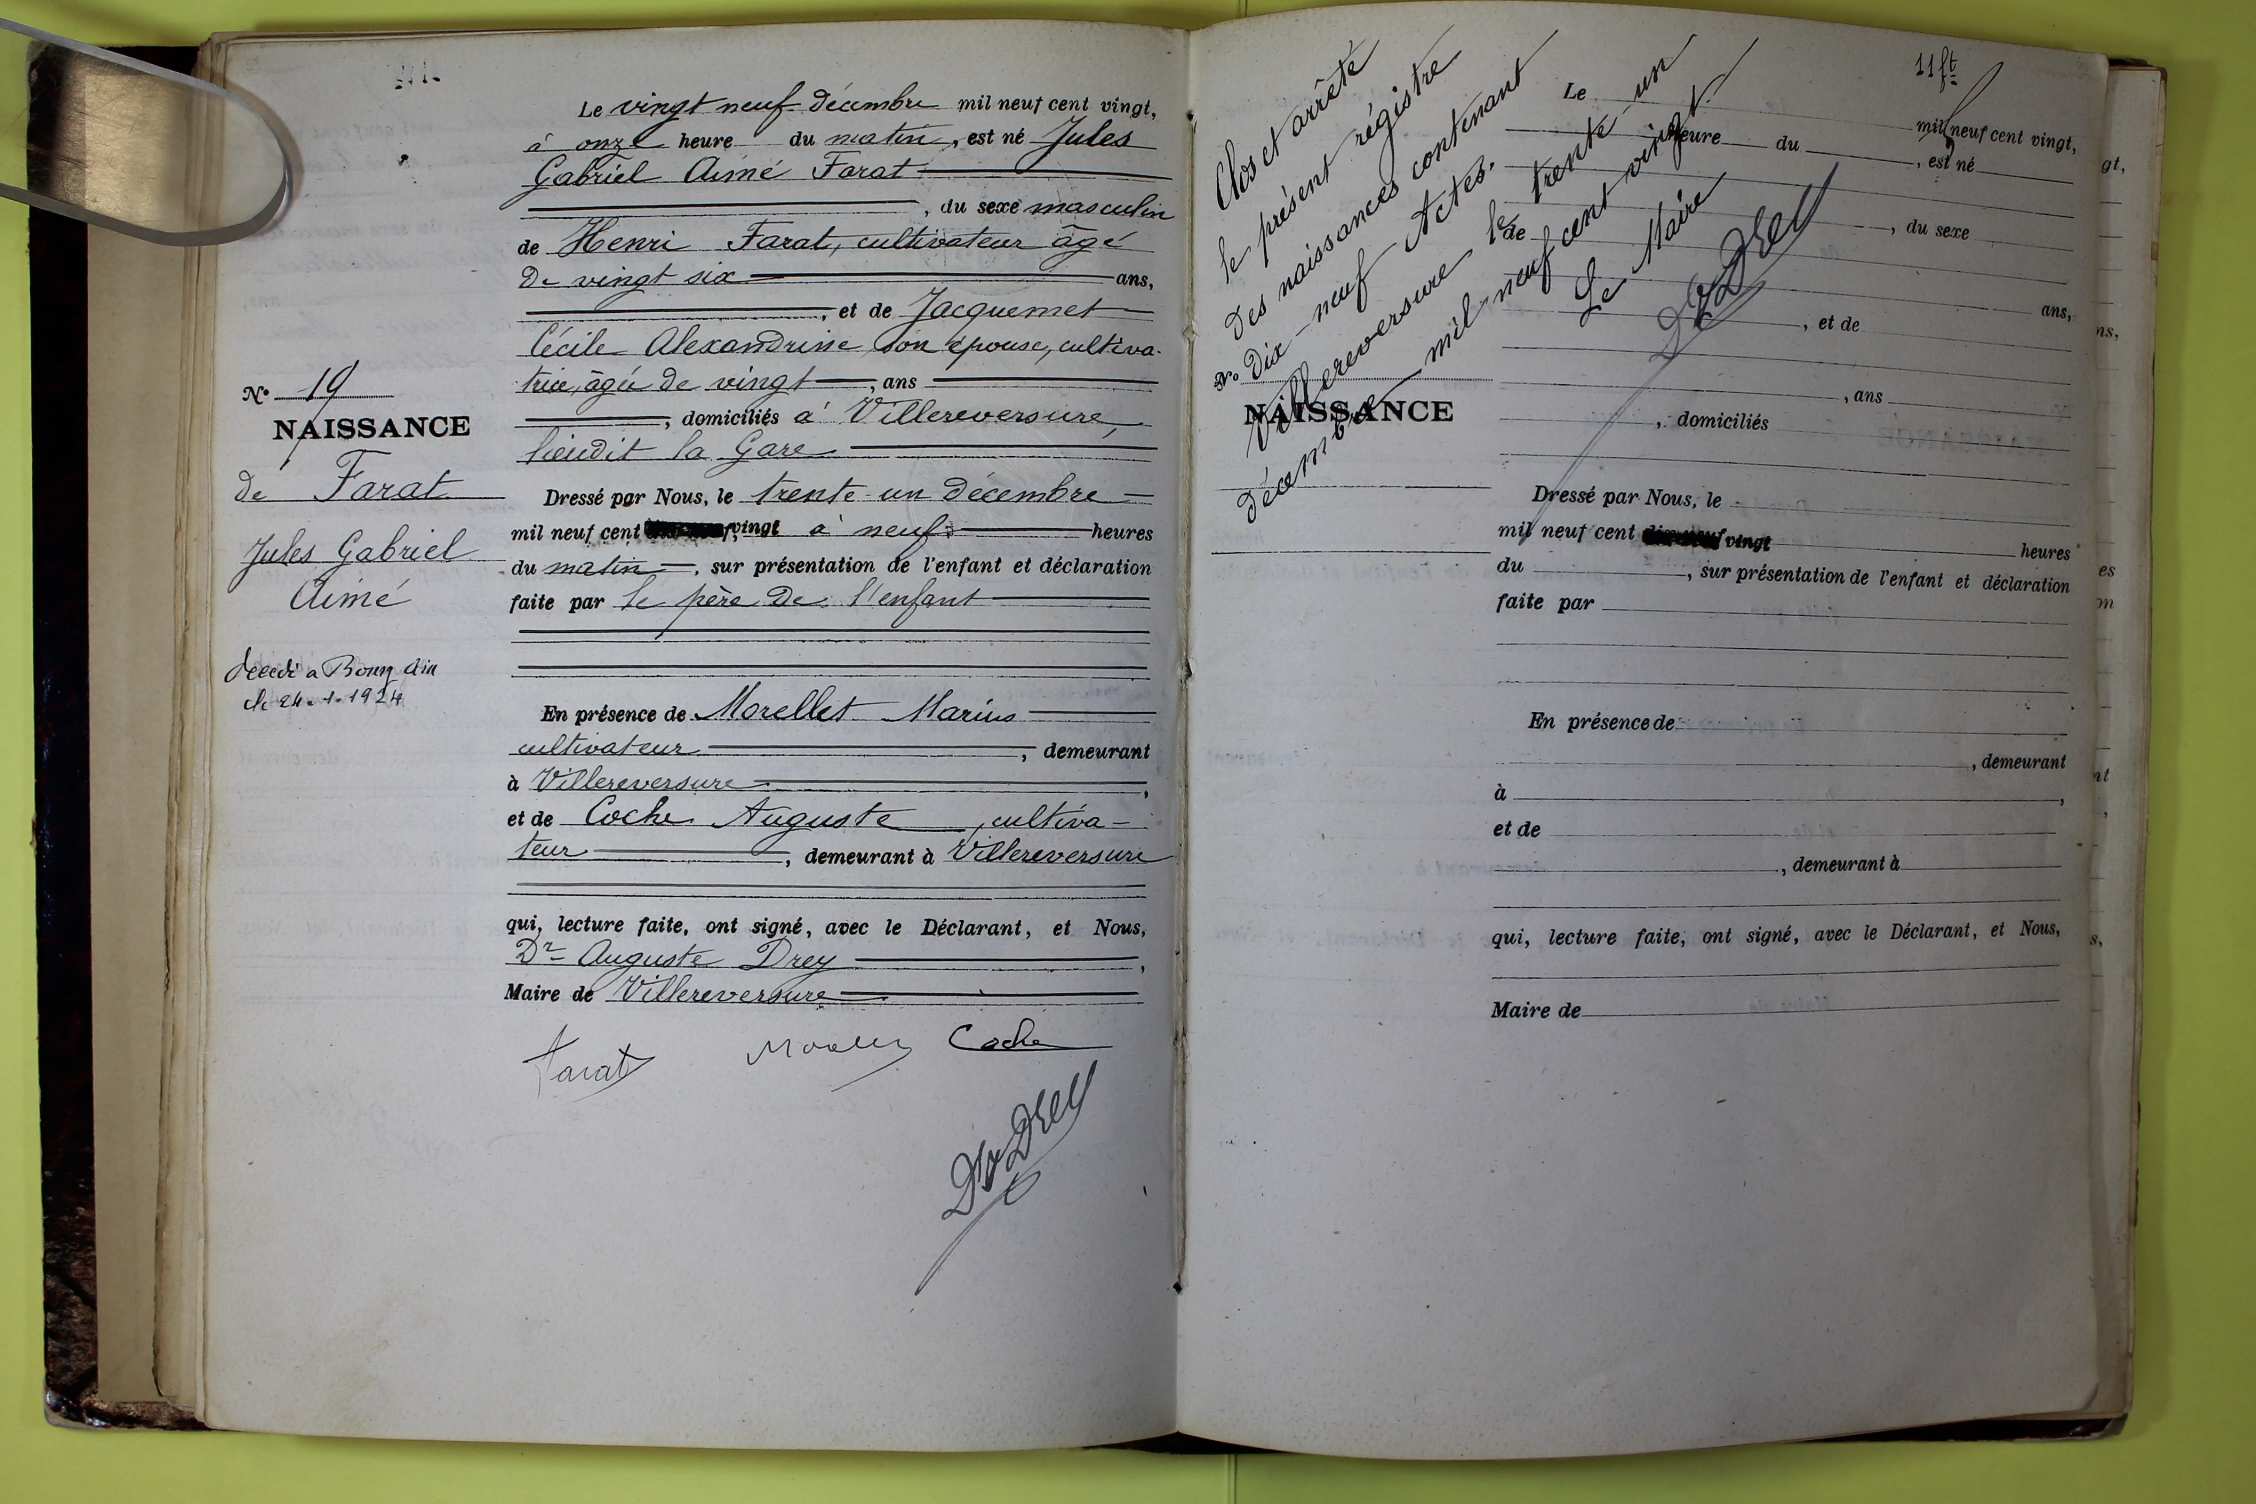 Le vingt neuf décembre mil neuf cent vingt,
à onze heure du matin, est né Jules
Gabriel Aimé Farat
, du sexe masculin
de Henri Farat, cultivateur âgé
de vingt six ans,
, et de Jacquemet
Cécile Alexandrine son épouse, cultiva-
trice, âgée de vingt, ans
, domiciliés à Villereversure,
lieudit la Gare
Dressé par Nous, le trente un décembre
mil neuf cent vingt à neuf heures
du matin, sur présentation de l'enfant et déclaration
faite par le père de l'enfant
En présence de Morellet Marius
cultivateur, demeurant
à Villereversure,
et de Coche Auguste, cultiva-
teur, demeurant à Villereversure
qui, lecture faite, ont signé, avec le Déclarant, et Nous,
Dr Auguste Drey,
Maire de Villereversure
Farat Coche
Dr Drey
N° 19
NAISSANCE
de Farat
Jules Gabriel
Aimé
décédé a Bourg Ain
le 24-1-1924
11 ft
Clos et arrêté
le présent régistre
des naissances contenant
dix-neuf Actes.
Villereversure le trente un
décembre mil neuf cent vingt.
Le Maire
Dr Drey
N°
NAISSANCE
Le mil neuf cent vingt,
heure du, est né
, du sexe
de
ans,
, et de
, ans
, domiciliés
Dressé par Nous, le
mil neuf cent vingt heures
du, sur présentation de l'enfant et déclaration
faite par
En présence de
, demeurant
à,
et de
, demeurant à
qui, lecture faite, ont signé, avec le Déclarant, et Nous,
Maire de